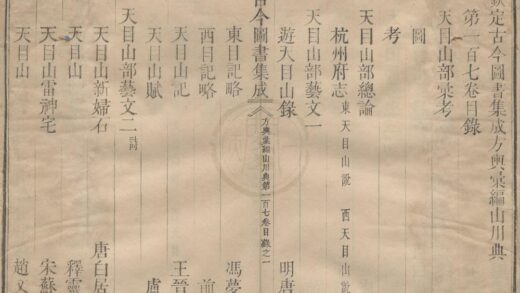 欽定古今圖書集成方輿彙編山川典
第一百七卷目錄
天目山部彙考
圖
考
天目山部總論
杭州府志 東天目山說 西天目山說
天目山部藝文一
遊天目山錄 明唐
古今圖書集成 方輿彙編山川典第一百七卷目錄之一
東目記略 馮夢
西目記略 前
天目山記 王晉
天目山賦 盧
天目山部藝文二 詩詞
天目山新婦石 唐白居
天目山 釋靈
天目山雷神宅 宋蘇
天目山 趙